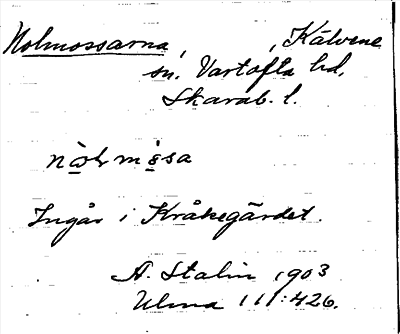 Nolmossarna, , Kälvene
sn. Vartofta hd,
Skarab. l.
Ingår i Kråkegärdet.
A. Stalin 1903
Ulma 111:426.